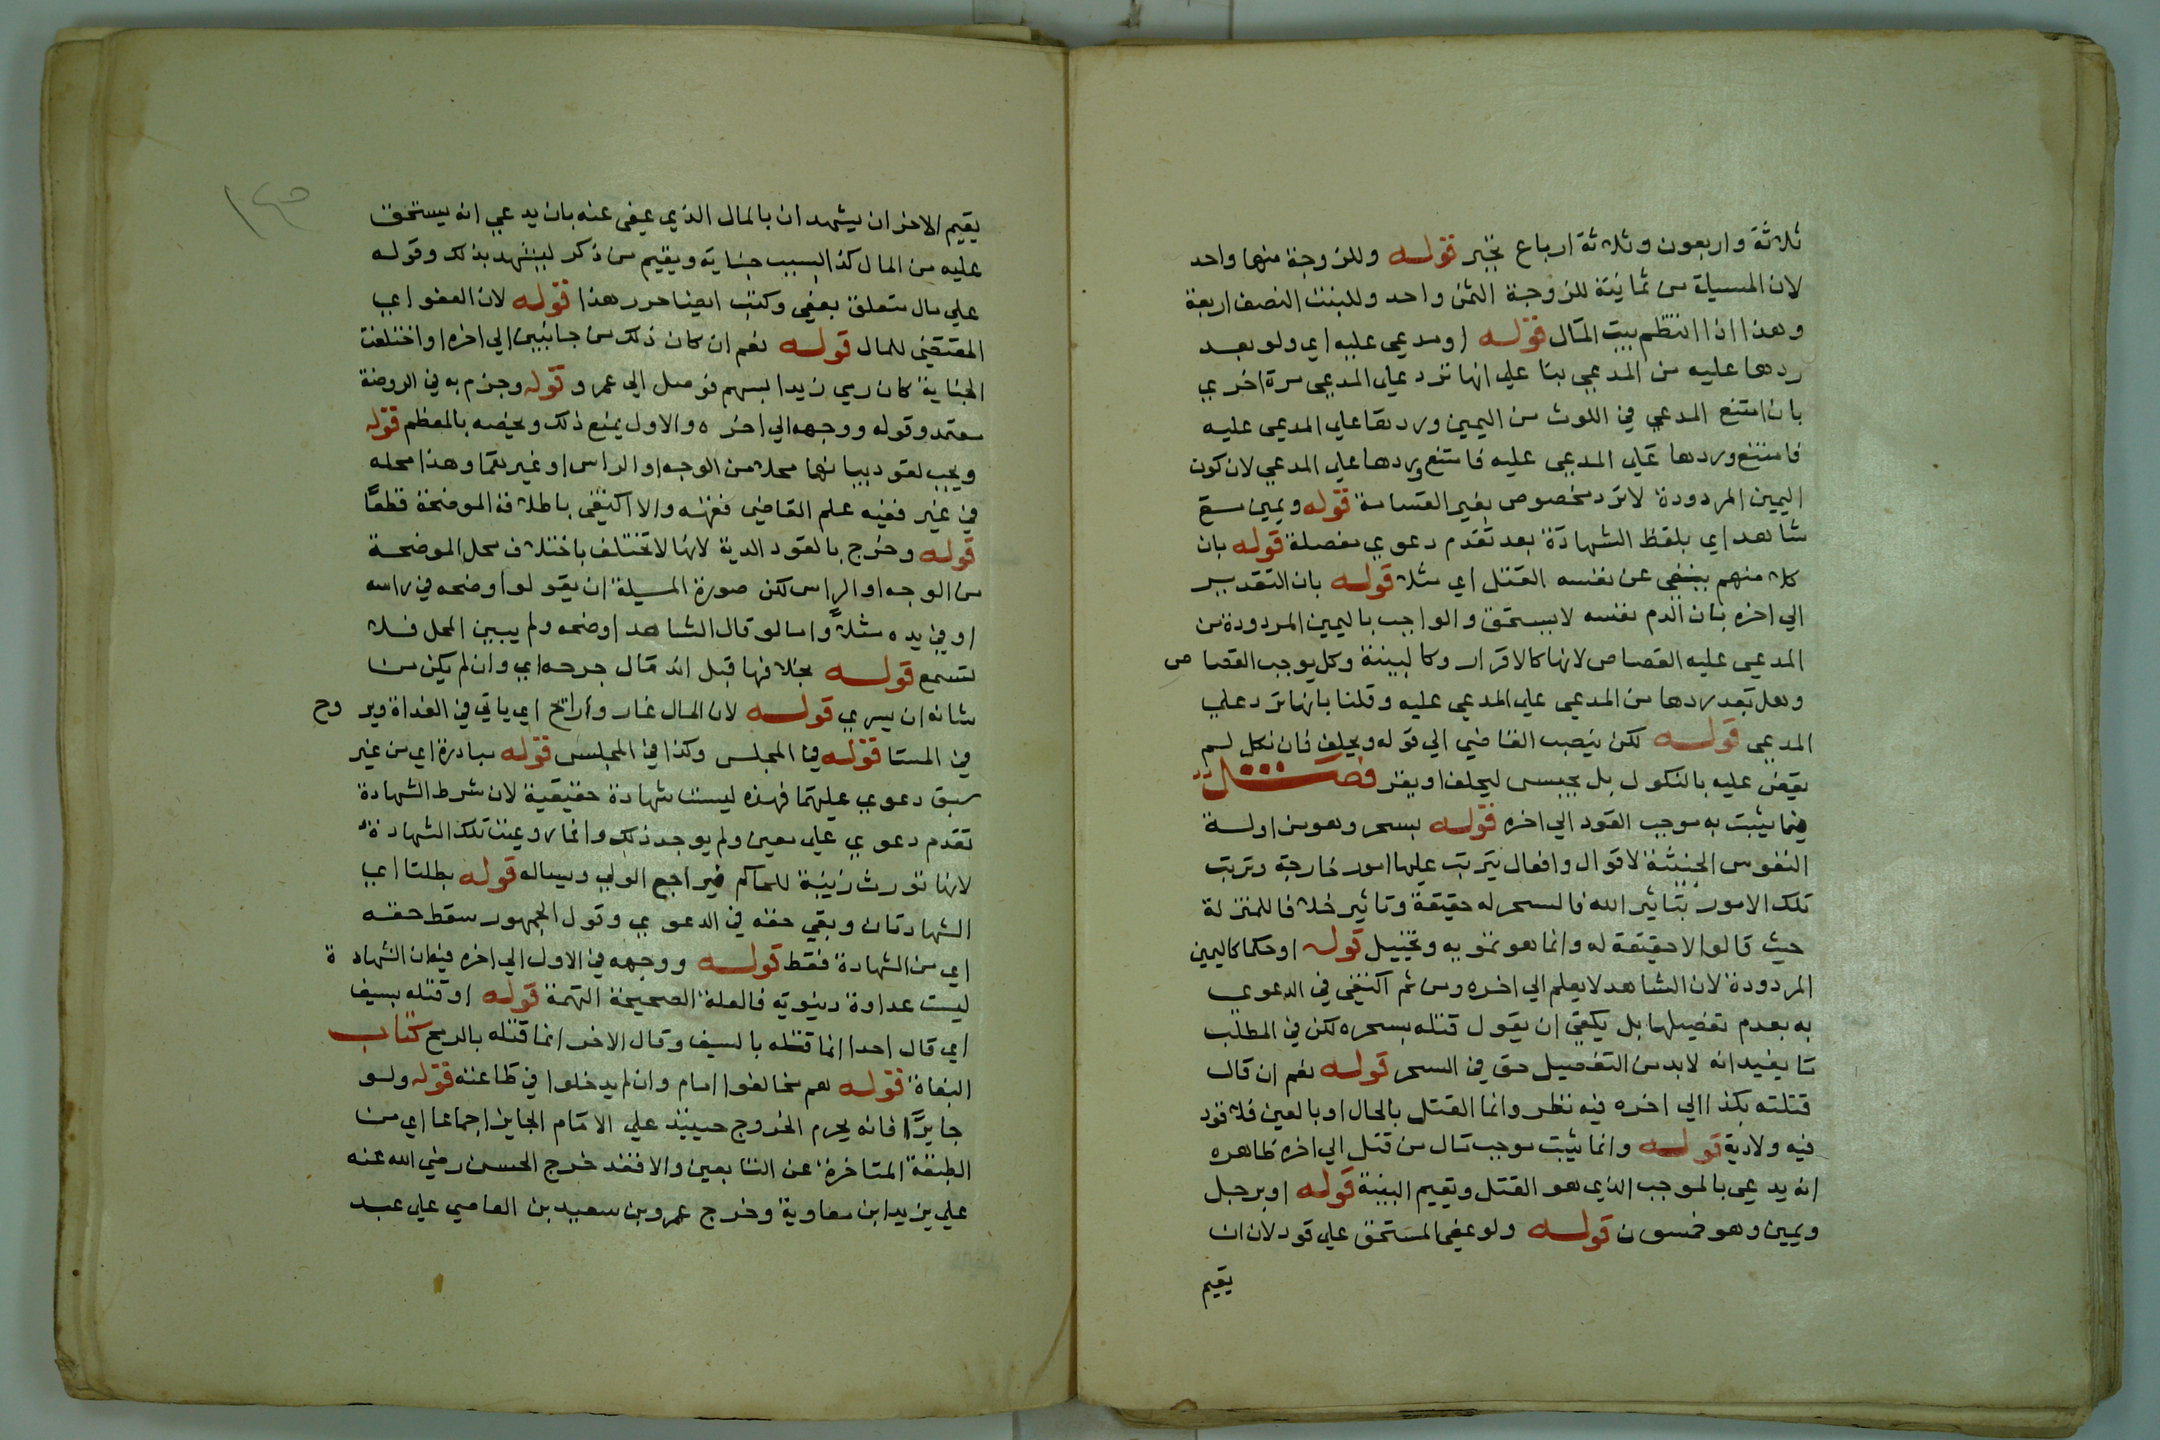 ثلاثة واربعون وثلاثة ارباع بخبر قوله وللزوجة منها واحد
لان المسيلة من ثمانية للزوجة الثمن واحد وللبنت النصف اربعة
وهذا اذا انتظم بيت المال قوله اومدعي عليه اي ولو بعد
ردها عليه من المدعي بنا علي انها ترد علي المدعي مرة اخري
بان امتنع المدعي في اللوث من اليمين وردها علي المدعي عليه
فامتنع وردها علي المدعي عليه فامتنع وردها علي المدعي لان كون
اليمين المردودة لا ترد مخصوص بغير القسامة قوله ويمين مع
شاهد اي بلفظ الشهادة بعد تقدم دعوي مفصلة قوله بان
كلا منهم ينفي عن نفسه القتل اي مثلا قوله بان التقدير
الي اخره بان الدم نفسه لا يستحق والواجب باليمين المردودة من
المدعي عليه القصاص لانها كالاقرار وكالبينة وكل يوجب القصاص
وهل بعد ردها من المدعي علي المدعي عليه وقلنا بانها ترد علي
المدعي قوله لكن ينصب القاضي الي قوله ويحلف فان نكل لم
يقض عليه بالنكول بل يحبس ليحلف او يقر فصل
فيما يثبت به موجب القود الي اخره قوله بسحر وهو مزاولة
النفوس الخبيثة لاقوال وافعال يترتب عليها امور خارجة وترتب
تلك الامور بتاثير الله فالسحر له حقيقة وتاثير خلافا للمعتزلة
حيث قالوا لا حقيقة له وانما هو تمويه وتخييل قوله او حكما كاليمين
المردودة لان الشاهد لا يعلم الي اخره ومن ثم اكتفي في الدعوي
به بعدم تفصيلها بل يكفي ان يقول قتله بسحره لكن في المطلب
ما يفيد انه لا بد من التفصيل حتي في السحر قوله نعم ان قال
قتلته بكذا الي اخره فيه نظر وانما القتل بالحال او بالعين فلا قود
فيه ولا دية قوله وانما يثبت موجب مال من قتل الي اخره ظاهره
انه يدعي بالموجب الذي هو القتل ويقيم البينة قوله او برجل
ويمين وهو خمسون قوله ولو عفي المستحق علي قود لان ان
يقيم
١٤٥
يقيم الاخر ان يشهد ان بالمال الذي عفي عنه بان يدعي انه يستحق
عليه من المال كذا بسبب جناية ويقيم من ذكر ليشهد بذلك وقوله
علي مال متعلق بعفي وكتب ايضا حرر هذا قوله لان العفو اي
المقتضي للمال قوله نعم ان كان ذلك من جانبين الي اخره او اختلفت
الجناية كان رمي زيدا بسهم فوصل الي عمرو قوله وجزم به في الروضة
معتمد وقوله ووجهه الي اخره والاول يمنع ذلك ويخصه بالمعظم قوله
ويجب لقود بيانها محلا من الوجه او الراس او غيرهما وهذا محله
في غير فقيه علم القاضي فقهه والا اكتفي باطلاقه الموضحة قطعا
قوله وخرج بالقود الدية لانها لا تختلف باختلاف محل الموضحة
من الوجه او الراس لكن صورة المسيلة ان يقولوا اوضحه في راسه
او في يده مثلا واما لو قال الشاهد اوضحه ولم يبين المحل فلا
تسمع قوله بخلافها قبل اذ قال جرحه اي وان لم يكن من
شانه ان يسري قوله لان المال غاد ورايح اي ياتي في الغداة ويروح
في المسا قوله في المجلس وكذا في المجلس قوله مبادرة اي من غير
سبق دعوي عليهما فهذه ليست شهادة حقيقية لان شرط الشهادة
تقدم دعوي علي معين ولم يوجد ذلك وانما روعيت تلك الشهادة
لانها تورث زينة للحاكم فيراجع الولي ويساله قوله بطلتا اي
الشهادتان وبقي حقه في الدعوي وقول الجمهور سقط حقه
اي من الشهادة فقط قوله ووجهه في الاول الي اخره فيه ان الشهادة
ليست عداوة دينوية فالعلة الصحيحة التهمة قوله او قتله بسيف
اي قال احدا انما قتله بالسيف وقال الاخر انما قتله بالرمح كتاب
البغاة قوله هم مخالفوا امام وان لم يدخلوا في طاعته قوله ولو
جايرا فانه يحرم الخروج حينيذ علي الامام الجاير اجماعا اي من
الطبقة المتاخرة عن التابعين والا فقد خرج الحسن رضي الله عنه
علي يزيد ابن معاوية وخرج عمرو بن سعيد بن العاصي علي عبد